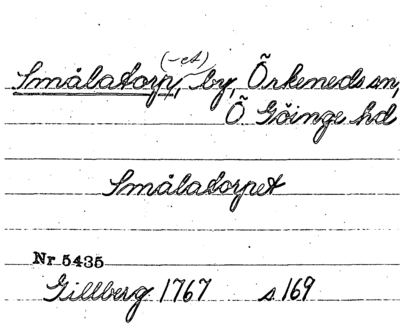 (-et)
Småladorp, by, Örkeneds sn,
Ö Göinge hd
Småladorpet
Nr 5435
Gillberg 1767 s 169